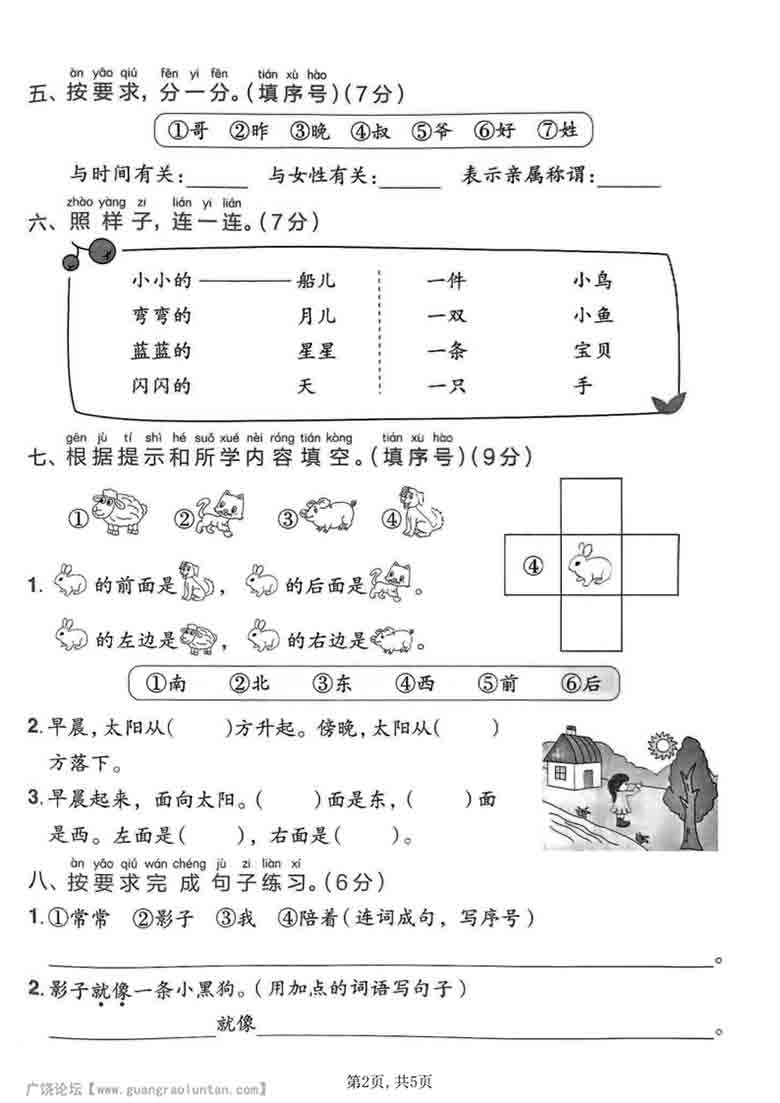 àn yāo qiú fēn yi fēn tián xù hào
五、按要求，分一分。(填序号)(7分)
①哥 ②昨 ③晚 ④叔 ⑤爷 ⑥好 ⑦姓
与时间有关：______ 与女性有关：______ 表示亲属称谓：______
zhào yàng zi lián yi lián
六、照样子，连一连。(7分)
小小的 船儿 一件 小鸟
弯弯的 月儿 一双 小鱼
蓝蓝的 星星 一条 宝贝
闪闪的 天 一只 手
gēn jù tí shì hé suǒ xué nèi róng tián kòng tián xù hào
七、根据提示和所学内容填空。(填序号)(9分)
① ② ③ ④
④
1. 的前面是 ， 的后面是 。
的左边是 ， 的右边是 。
①南 ②北 ③东 ④西 ⑤前 ⑥后
2.早晨，太阳从( )方升起。傍晚，太阳从( )
方落下。
3.早晨起来，面向太阳。( )面是东，( )面
是西。左面是( )，右面是( )。
àn yāo qiú wán chéng jù zi liàn xí
八、按要求完成句子练习。(6分)
1.①常常 ②影子 ③我 ④陪着(连词成句，写序号)
______。
2.影子就像一条小黑狗。(用加点的词语写句子)
______就像______。
第2页，共5页
广饶论坛【www.guangraoluntan.com】